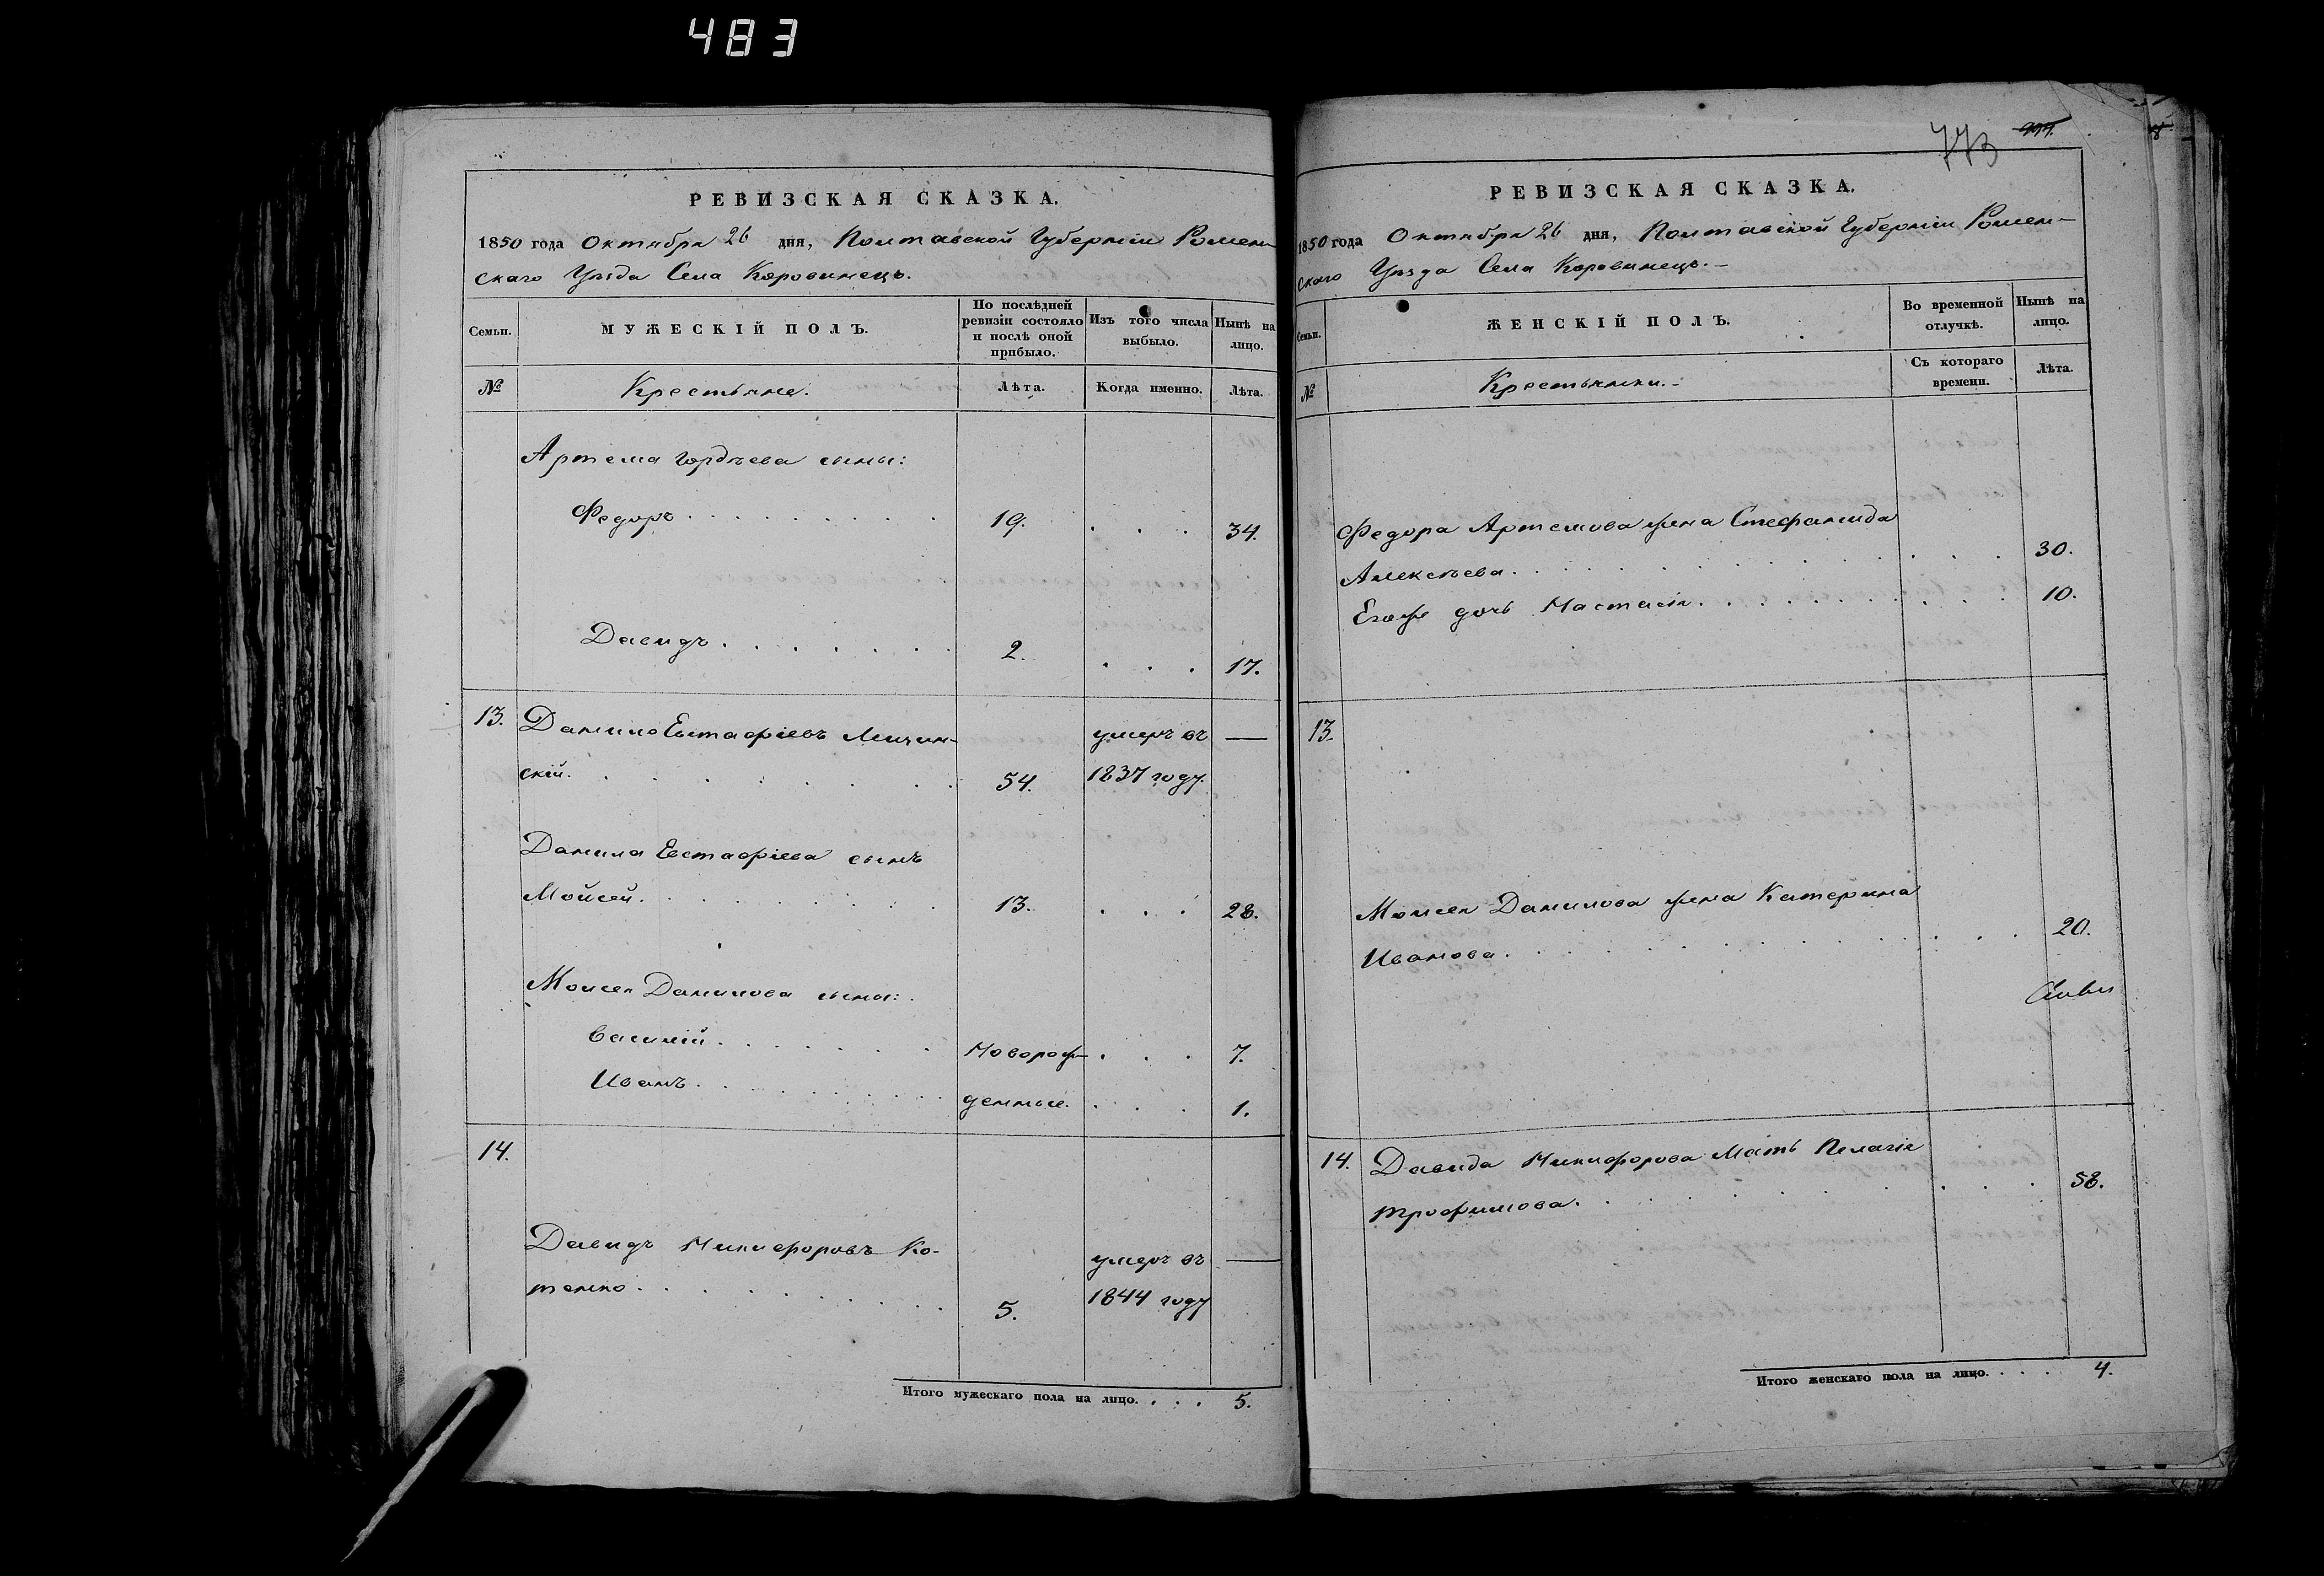 483
РЕВИЗСКАЯ СКАЗКА.
1850 года Октября 26 дня, Полтавской Губерніи Ромен-
скаго Уѣзда Села Коровинецъ.
Семьи.
МУЖЕСКІЙ ПОЛЪ.
По послѣдней ревизіи состояло и послѣ оной прибыло.
Изъ того числа выбыло.
Нынѣ на лицо.
№
Крестьяне.
Лѣта.
Когда именно.
Лѣта.
Артема Гордѣева сыны:
Федоръ . . . 19. . . . 34.
Давидъ . . . 2. . . . 17.
13. Данило Евстафіевъ умеръ въ —
скій. . . . 54. 1837 году.
Данила Евстафіева сынъ
Мойсей. . . . 13. . . . 28.
Моисея Данилова сыны:
Василій . . . Новорож- . . . 7.
Иванъ . . . денные. . . . 1.
14.
Давидъ Никифоровъ Ко- умеръ въ —
тенко . . . 5. 1844 году
Итого мужескаго пола на лицо. . . . 5.
773
РЕВИЗСКАЯ СКАЗКА.
1850 года Октября 26 дня, Полтавской Губерніи Ромен-
скаго Уѣзда Села Коровинецъ.
Семьи.
ЖЕНСКІЙ ПОЛЪ.
Во временной отлучкѣ.
Нынѣ на лицо.
№
Крестьянки.
Съ котораго времени.
Лѣта.
Федора Артемова жена Стефанида
Алексѣева . . . 30.
Егоже дочь Настасія . . . 10.
13.
Моисея Данилова жена Катерина
Иванова . . . 20.
14. Давида Никифорова Мать Пелагія
Трофимова. . . . 58.
Итого женскаго пола на лицо. . . . 4.